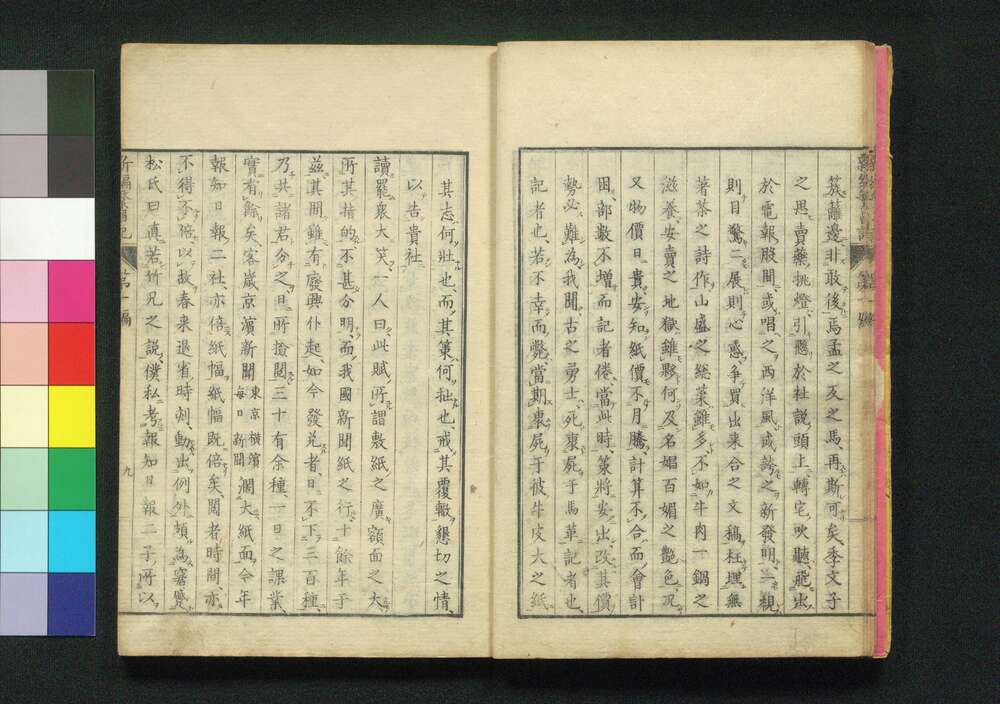 籬邊非敢後焉孟之反之馬再斯可矣季文子
之思賣藥挑燈引懸於社說頭上轉宅吹聽飛出
於電報股間或唱之西洋風或誇之新發明一覩
則目驚二展則心惑爭買出来合之文稿枉埋無
著茶之詩作山盛之総菜雖多不如牛肉一鍋之
滋養安賣之地獄雖夥何及名媚百媚之艶色况
又物價日貴安知紙價不月騰計算不合而會計
困部數不增而記者倦當此時策將安出改其價
勢必難為我聞古之勇士死裹屍于馬革記者也
記者也若不幸而斃當期裹屍于彼牛皮大之紙
其志何壯也而其策何拙也戒其覆轍懇切之情
以告貴社
讀罷衆大笑一人曰此賦所謂敷紙之廣額面之大
所其指的不甚分明而我國新聞紙之行十餘年于
茲其間雖有廢興仆起如今發兌者日不下三百種
乃共諸君分之日所撿閱三十有余種一日之課業
實有餘矣客歲京濱新聞東京橫濱每日新聞濶大紙面今年
報知日報二社亦倍紙幅紙幅既倍矣閱者時間亦
不得不倍以故春来退省時刻動出例外頗為窘蹙
松氏曰真若竹兄之說僕私考報知日報二子所以
第一編
九